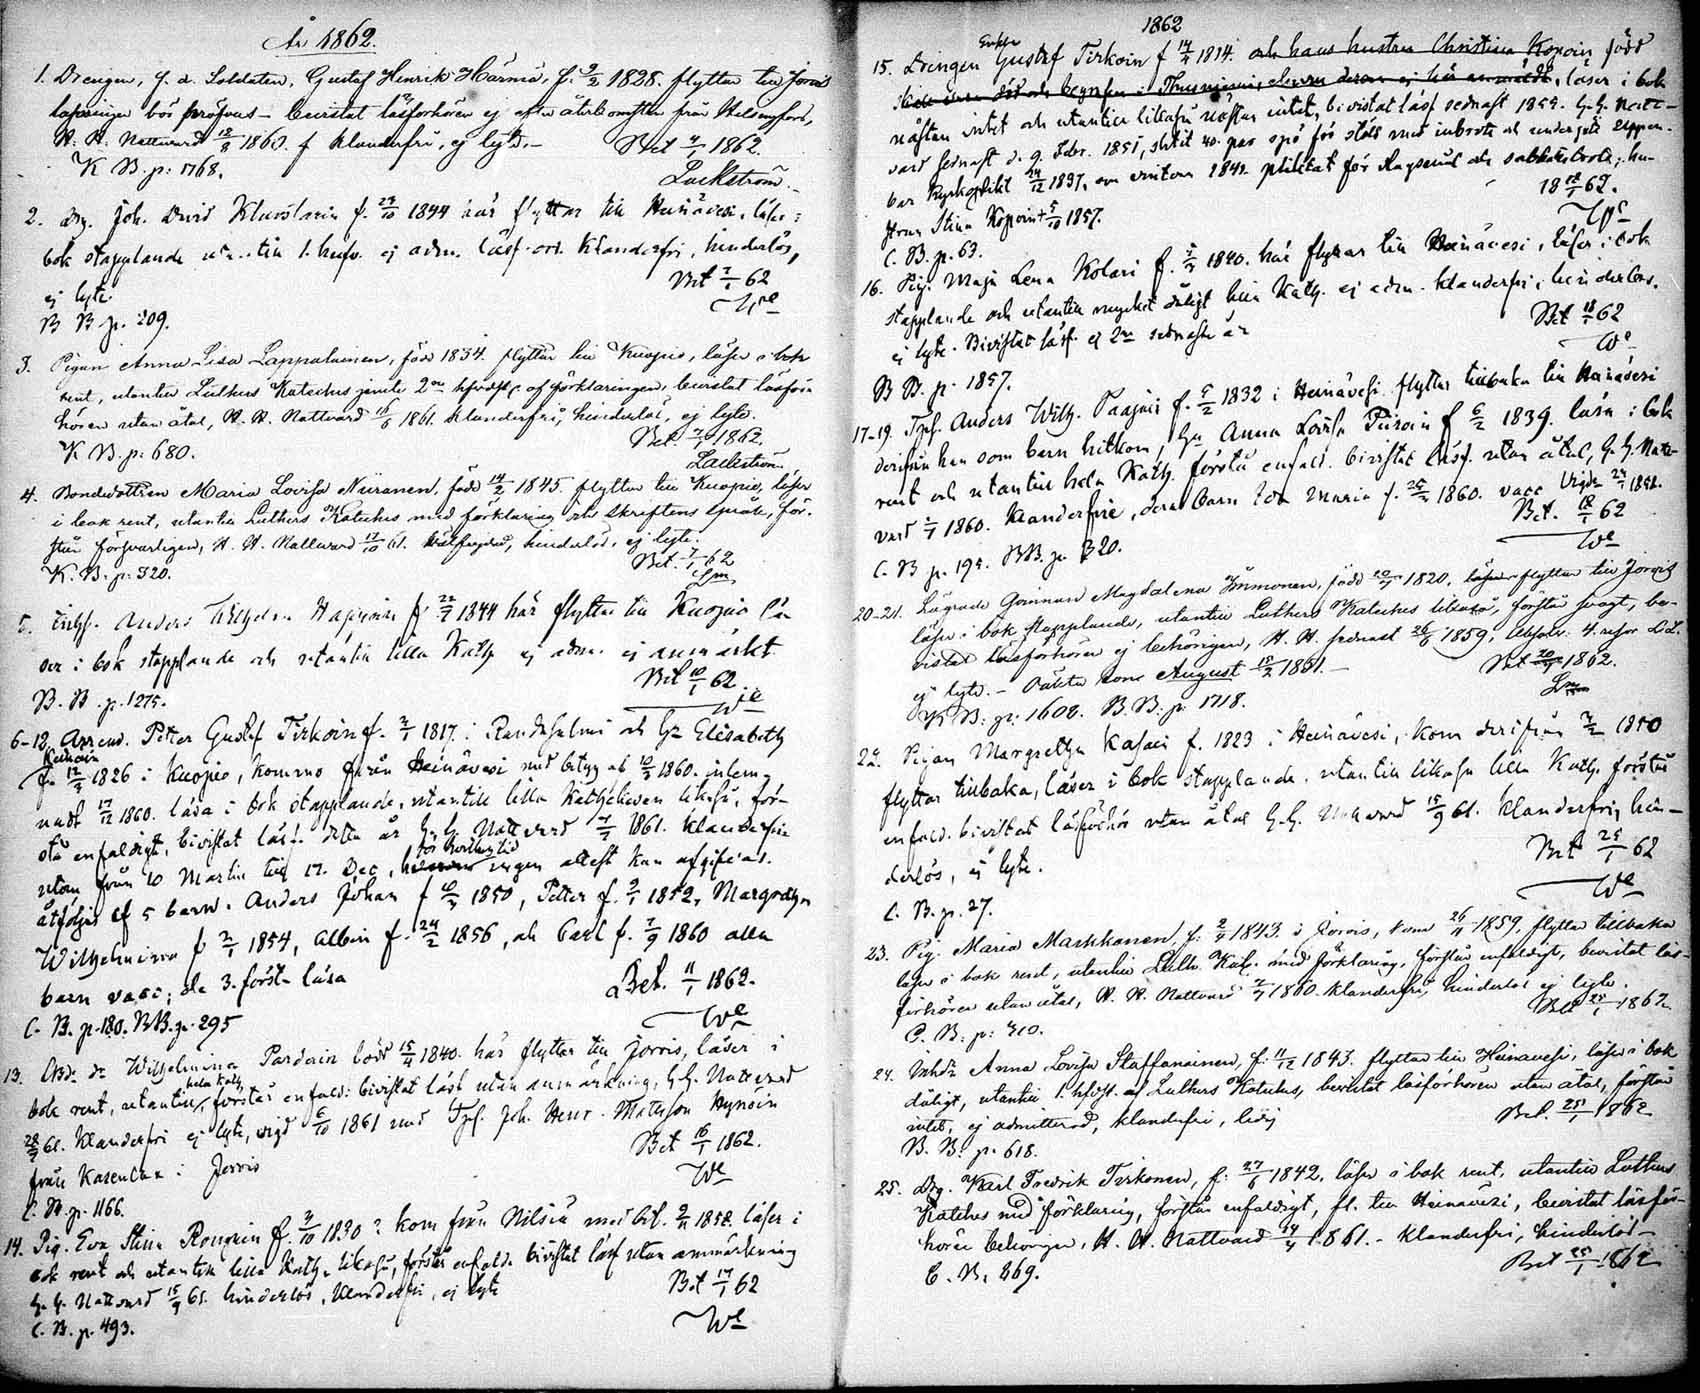 År 1862.
1. Drengen, f. d. Soldaten, Gustaf Henrik Härmä, f. 9/2 1828. flyttar till Jorois
bör pröfvas – bevistat läsförhören ej efter återkomsten från Helsingfors,
H. H. Nattvard 18/8 1860. klanderfri, ej lyte. –
Bet 4/1 1862.
K B. p: 1768.
Lackström.
2. Drg. Joh. David f. 29/10 1844 här flyttar till Heinävesi, läser i
bok stapplande till 1. hufv. ej adm. läsf. ord. klanderfri, hinderlös,
Bet 7/1 62
ej lyte.
We
B B p. 209.
3. Pigan Anna Lisa Lappalainen, född 1834. flyttar till Kuopio, läser i bok
rent, utantill Luthers Kateches jemte 2ne af förklaringen, bevistat läsför-
hören utan åtal, H. H. Nattvard 16/6 1861. klanderfri, hinderlös, ej lyte.
Bet. 7/1 1862.
K B. p: 680.
Lackström
4. Bondedottren Maria Lovisa Niiranen, född 14/2 1845. flyttar till Kuopio, läser
i bok rent, utantill Luthers Kateches med förklaring och skriftens språk, för-
står försvarligen, H. H. Nattvard 17/10 61. välfrejdad, hinderlös, ej lyte.
Bet. 7/1 62
K. B. p: 320.
Lm
5. Anders Wilhelm f. 22/7 1844 här flyttar till Kuopio lä-
ser i bok stapplande och utantill lilla Kath. ej adm. ej anmärkt
Bet 10/1 62
B. B. p. 1275.
We
6-12. Arrend. Petter Gustaf Tirkoin f. 2/1 1817. i Randasalmi och Ha Elisabeth
f. 12/2 1826 i Kuopio, komne från Heinävesi med betyg af 10/3 1860.
17/12 1860. läsa i bok stapplande, utantill lilla Kathekesen likaså, för-
stå enfaldigt, bevistat läsf. detta år H. H. Nattvard 7/7 1861. klanderfria
utom från 10 Martii till 17. Dec, för hvilken tid ingen attest kan afgifvas.
åtföljas af 5 barn. Anders Johan f 10/3 1850, Petter f. 9/1 1852, Margretha
Wilhelmina f 2/1 1854, Albin f. 24/2 1856, och Carl f. 7/9 1860 alla
barn vacc; de 3. första läsa
Bet. 11/1 1862.
C. B. p. 180. BB. p. 295
We
13. Wilhelmina Pardain född 15/4 1840. här flyttar till Jorois, läser i
bok rent, utantill hela Kath. förstår enfald: bevistat läsf. utan anmärkning, H. H. Nattvard
28/7 61. klanderfri ej lyte, vigd 6/10 1861 med Joh. Henr. Matsson Hynöin
från i Jorois
Bet 16/1 1862.
We
C. B. p. 1166.
14. Pig. Eva Stina f. 4/10 1830? kom från Nilsiä med bet. 9/11 1858. läser i
bok rent och utantill lilla Kath. likaså, förstår enfald. bevistat läsf utan anmärkning
H. H. Nattvard 15/9 61. hinderlös, klanderfri, ej lyte
Bet 17/1 62
C. B. p. 493.
We
1862
Enkl.
15. Drengen Gustaf Tirkoin f 14/4 1814. och hans hustru Christina Kopoin född
läser i bok
nästan intet och utantill likaså nästan intet, bevistat läsf sednast 1859. H. H. Natt-
vard sednast d. 9. Febr. 1851, slitit 40. par spö för stöld med inbrott och undergått uppen-
bar Kyrkoplikt 24/12 1837, och sabbathsbrott; hu-
strun Stina Kopoin † 5/10 1857.
18 18/1 62.
We
C. B. p. 63.
16. Pig. Maja Lena Kolari f. 1840. här flyttar till Heinävesi, läser i bok
stapplande och utantill mycket dåligt lilla Kath. ej adm. klanderfri, hinderlös.
ej lyte. Bevistat läsf. ej 2ne sednaste år
Bet 18/1 62
We
B B. p. 1857.
17-19. Anders Wilh. Paajain f. 5/2 1832 i Heinävesi flyttar tillbaka till Heinävesi
derifrån han som barn hitkom, Ha Anna Lovisa f 6/2 1839. läsa i bok
rent och utantill hela Kath. förstå enfald. bevistat läsf. utan åtal, H. H. Natt-
vard 1860. klanderfrie, deras barn Ida Maria f. 1860. vacc. Vigde 1858.
Bet. 18/1 62
C. B p. 195. BB. p. 320.
We
20-21. Lägrade Qvinnan Magdalena Immonen, född 1820, flyttar till Jorois
läser i bok stapplande, utantill Luthers Kateches likaså, förstår svagt, be-
vistat läsförhören ej behörigen, H. H. sednast 26/6 1859, Absolv. 4. resor L.L.
ej lyte. – Oäkta Sone August 18/2 1851. –
Bet 20/1 1862.
Lm
K B. p: 1608. B. B: p. 1718.
22. Pigan Margretha Kasain f. 1823 i Heinävesi, kom derifrån 1850
flyttar tillbaka, läser i bok stapplande. utantill likaså lilla Kath. förstår
enfald. bevistat läsförhör utan åtal H. H. Nattvard 15/9 61. klanderfri, hin-
derlös, ej lyte.
Bet 25/1 62
We
C. B. p. 27.
23. Pig. Maria Markkanen, f. 2/4 1843 i Jorois, kom 26/11 1859, flyttar tillbaka
läser i bok rent, utantill Luth. Kat. med förklaring, förstår enfaldigt, bevistat läs-
förhören utan åtal, H. H. Nattvard 1860. klanderfri, hinderlös ej lyte.
Bet 25/1 1862
C. B: p: 310.
24. Inhda Anna Lovisa Staffanainen, f. 11/12 1843. flyttar till Heinävesi, läser i bok
dåligt, utantill 1. hfdst. af Luthers Kateches, bevistat läsförhören utan åtal, förstår
intet, ej admitterad, klanderfri, ledig
Bet. 25/1 1862
B. B: p. 618.
25. Drg. Karl Fredrik Tirkonen, f. 27/6 1842, läser i bok rent, utantill Luthers
Kateches med förklaring, förstår enfaldigt, fl. till Heinävesi, bevistat läsför-
hören behörigen, H. H. Nattvard 14/4 1861. – klanderfri, hinderlös –
Bet 25/1 1862
C. B. 869.